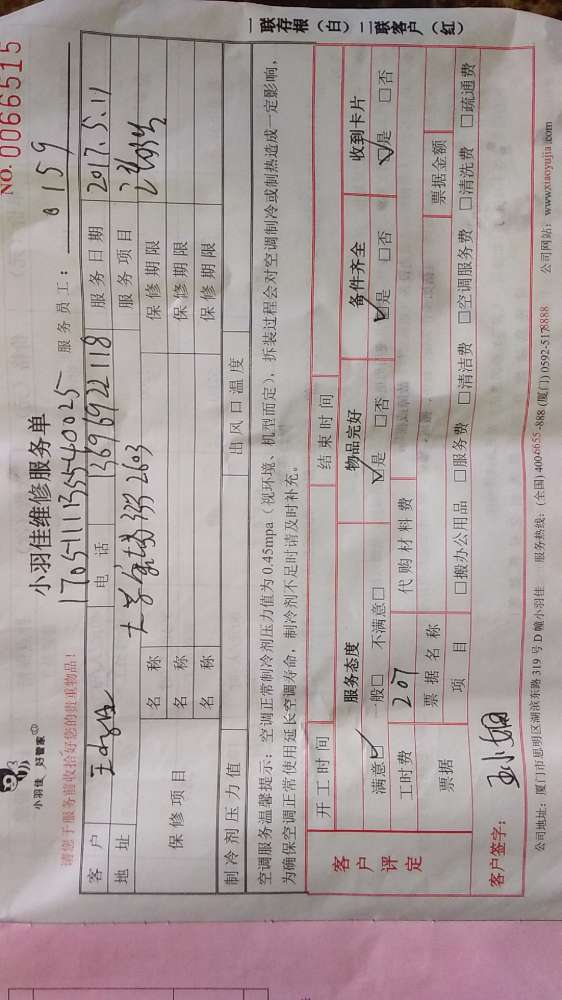 NO. 0066515
小羽佳 好管家
小羽佳维修服务单
请您于服务前收拾好您的贵重物品!
服务员工: 0159
客户 电话 13696922118 服务日期 2017.5.11
地址 服务项目
保修项目 名称 保修期限
名称 保修期限
名称 保修期限
制冷剂压力值 出风口温度
空调服务温馨提示: 空调正常制冷剂压力值为0.45mpa(视环境、机型而定), 拆装过程会对空调制冷或制热造成一定影响,
为确保空调正常使用延长空调寿命, 制冷剂不足时请及时补充。
开工时间 结束时间
客户评定 服务态度 物品完好 备件齐全 收到卡片
满意☑ 一般□ 不满意□ ☑是 □否 ☑是 □否 ☑是 □否
工时费 207 代购材料费
票据 票据名称 票据金额
项目 □搬办公用品 □服务费 □清洁费 □空调服务费 □清洗费 □疏通费
客户签字:
公司地址: 厦门市思明区湖滨东路319号D幢小羽佳 服务热线: (全国) 4006655-888 (厦门) 0592-5178888 公司网站: www.xiaoyujia.com
一联存根(白) 二联客户(红)